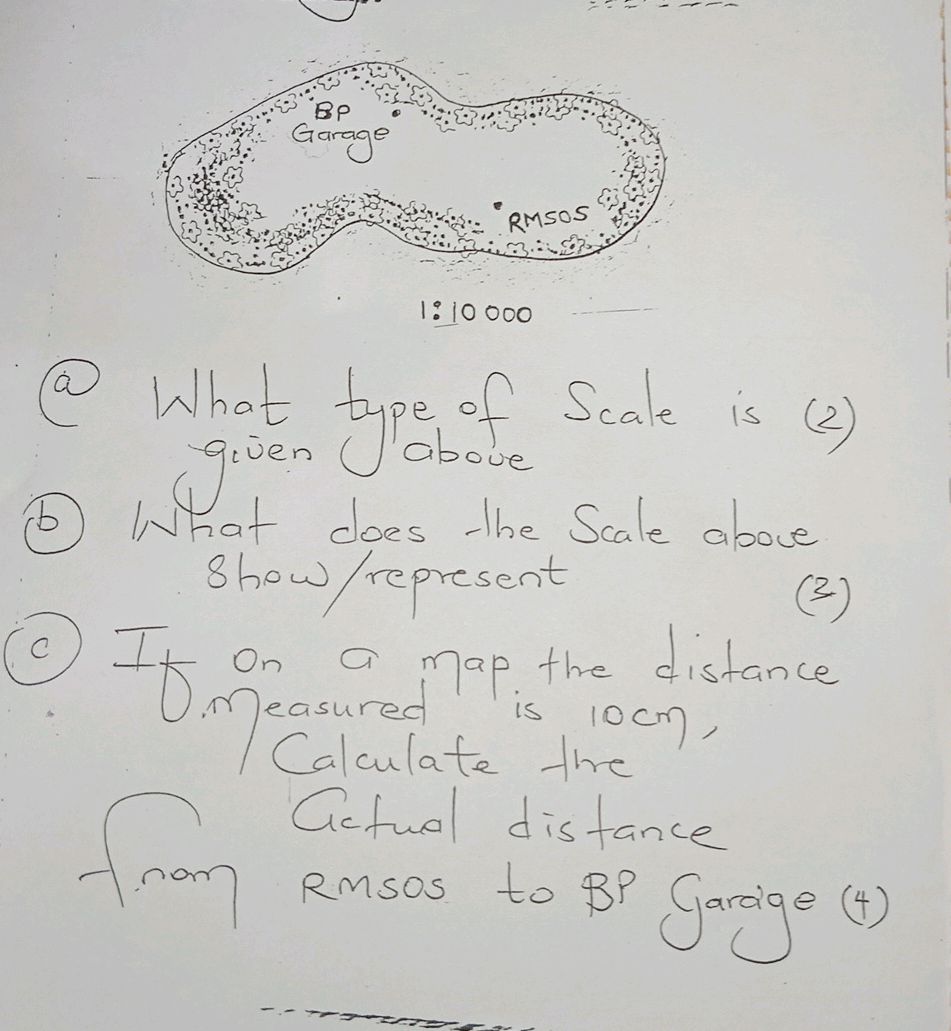 BP
Garage
RMSOS
1:10 000
(a) What type of Scale is (2)
given above
(b) What does the Scale above
Show/represent (3)
(c) If on a map the distance
measured is 10cm,
Calculate the
Actual distance
from RMSOS to BP Garage (4)